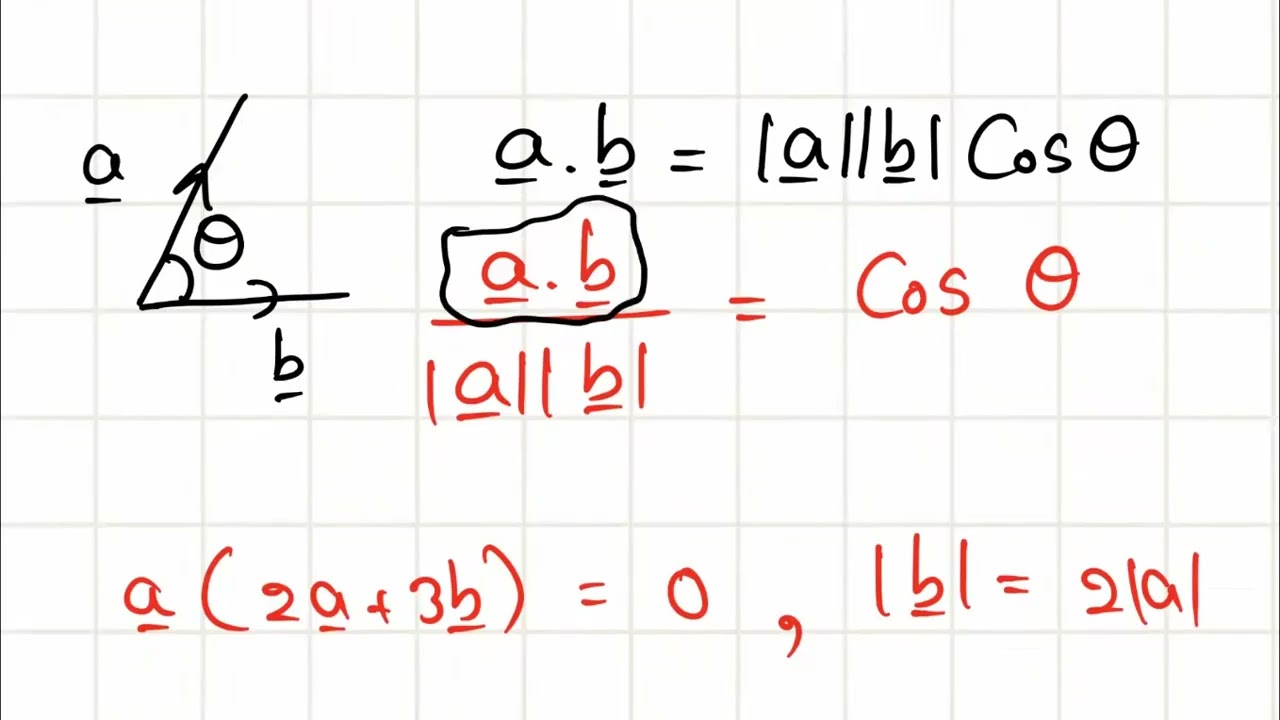 a
θ
b
a . b = |a||b| Cos θ
a . b
|a||b|
= Cos θ
a (2a + 3b) = 0 , |b| = 2|a|